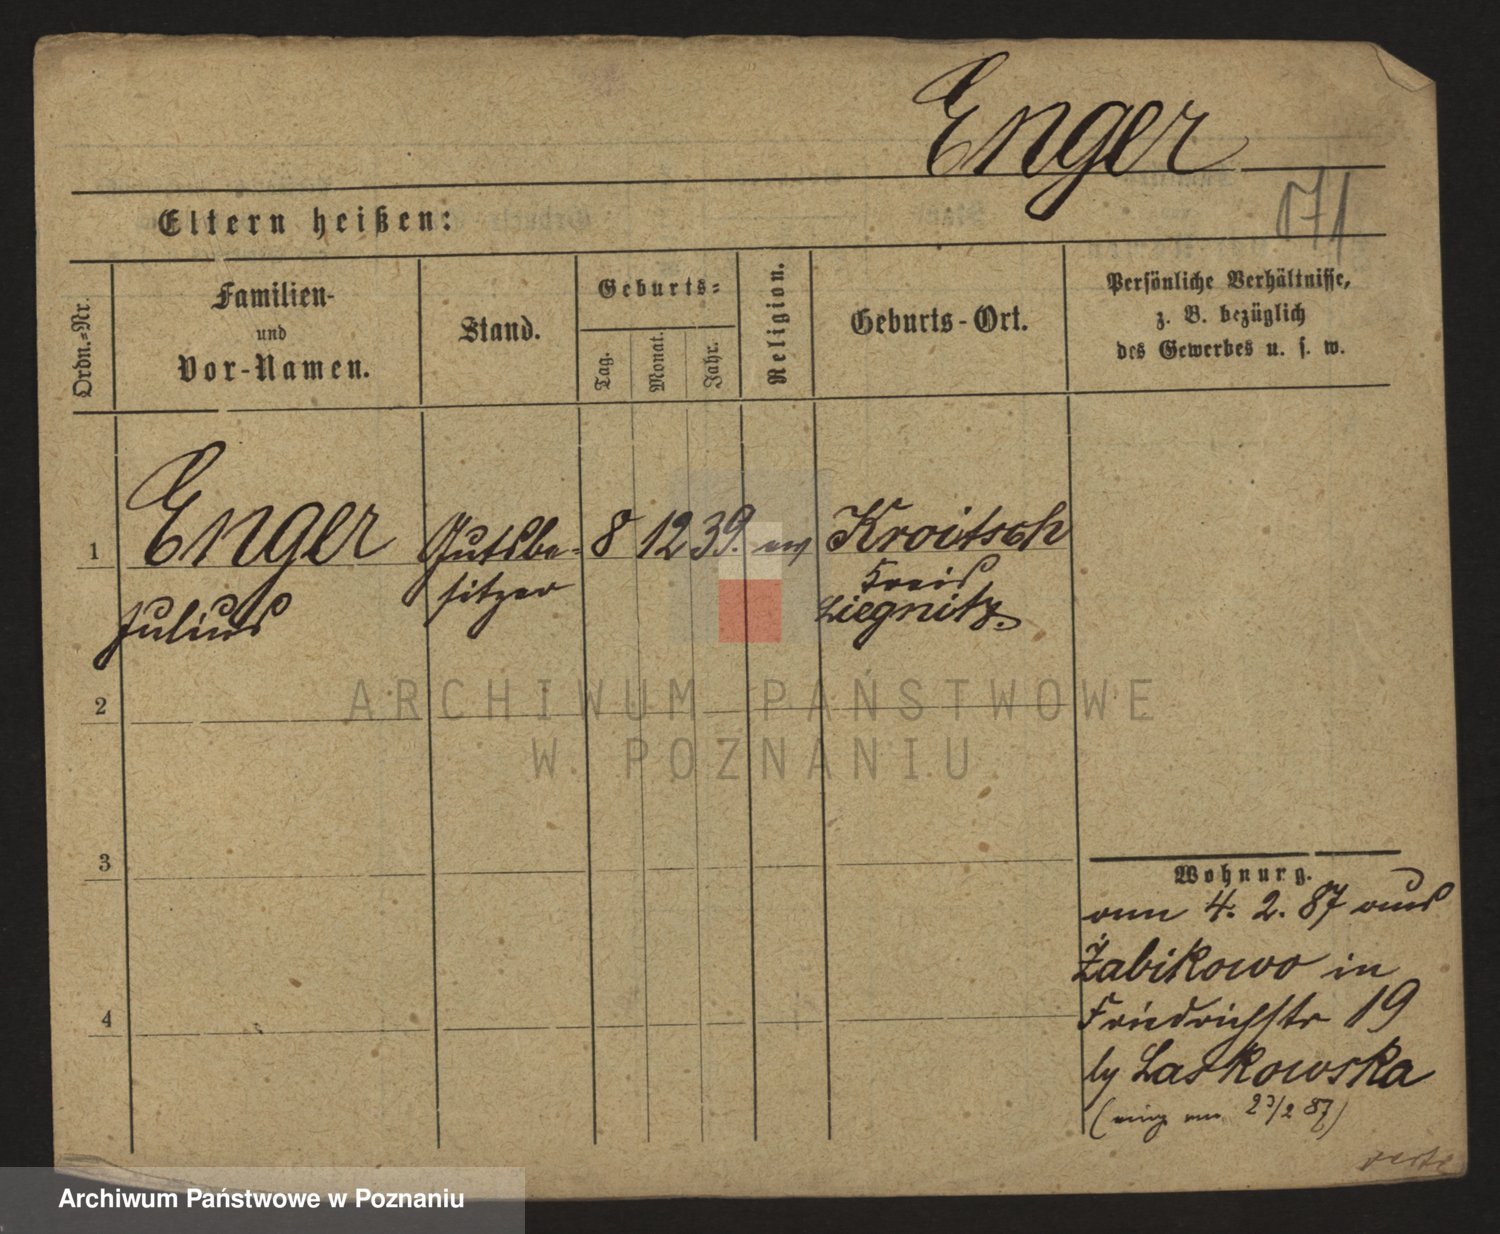 Enger
171
Eltern heißen:
Ordn.-Nr.
Familien-
und
Vor-Namen.
Stand.
Geburts-
Tag.
Monat.
Jahr.
Religion.
Geburts-Ort.
Persönliche Verhältnisse,
z. B. bezüglich
des Gewerbes u. s. w.
1
Enger
Julius
Gutsbe-
sitzer
8 12 39.
ev
Kroitsch
Kreis
Liegnitz.
2
ARCHIWUM PAŃSTWOWE
W POZNANIU
3
4
Wohnung.
4. 2. 87 aus
Żabikowo in
Friedrichstr 19
by Laskowska
23/2 87)
Archiwum Państwowe w Poznaniu